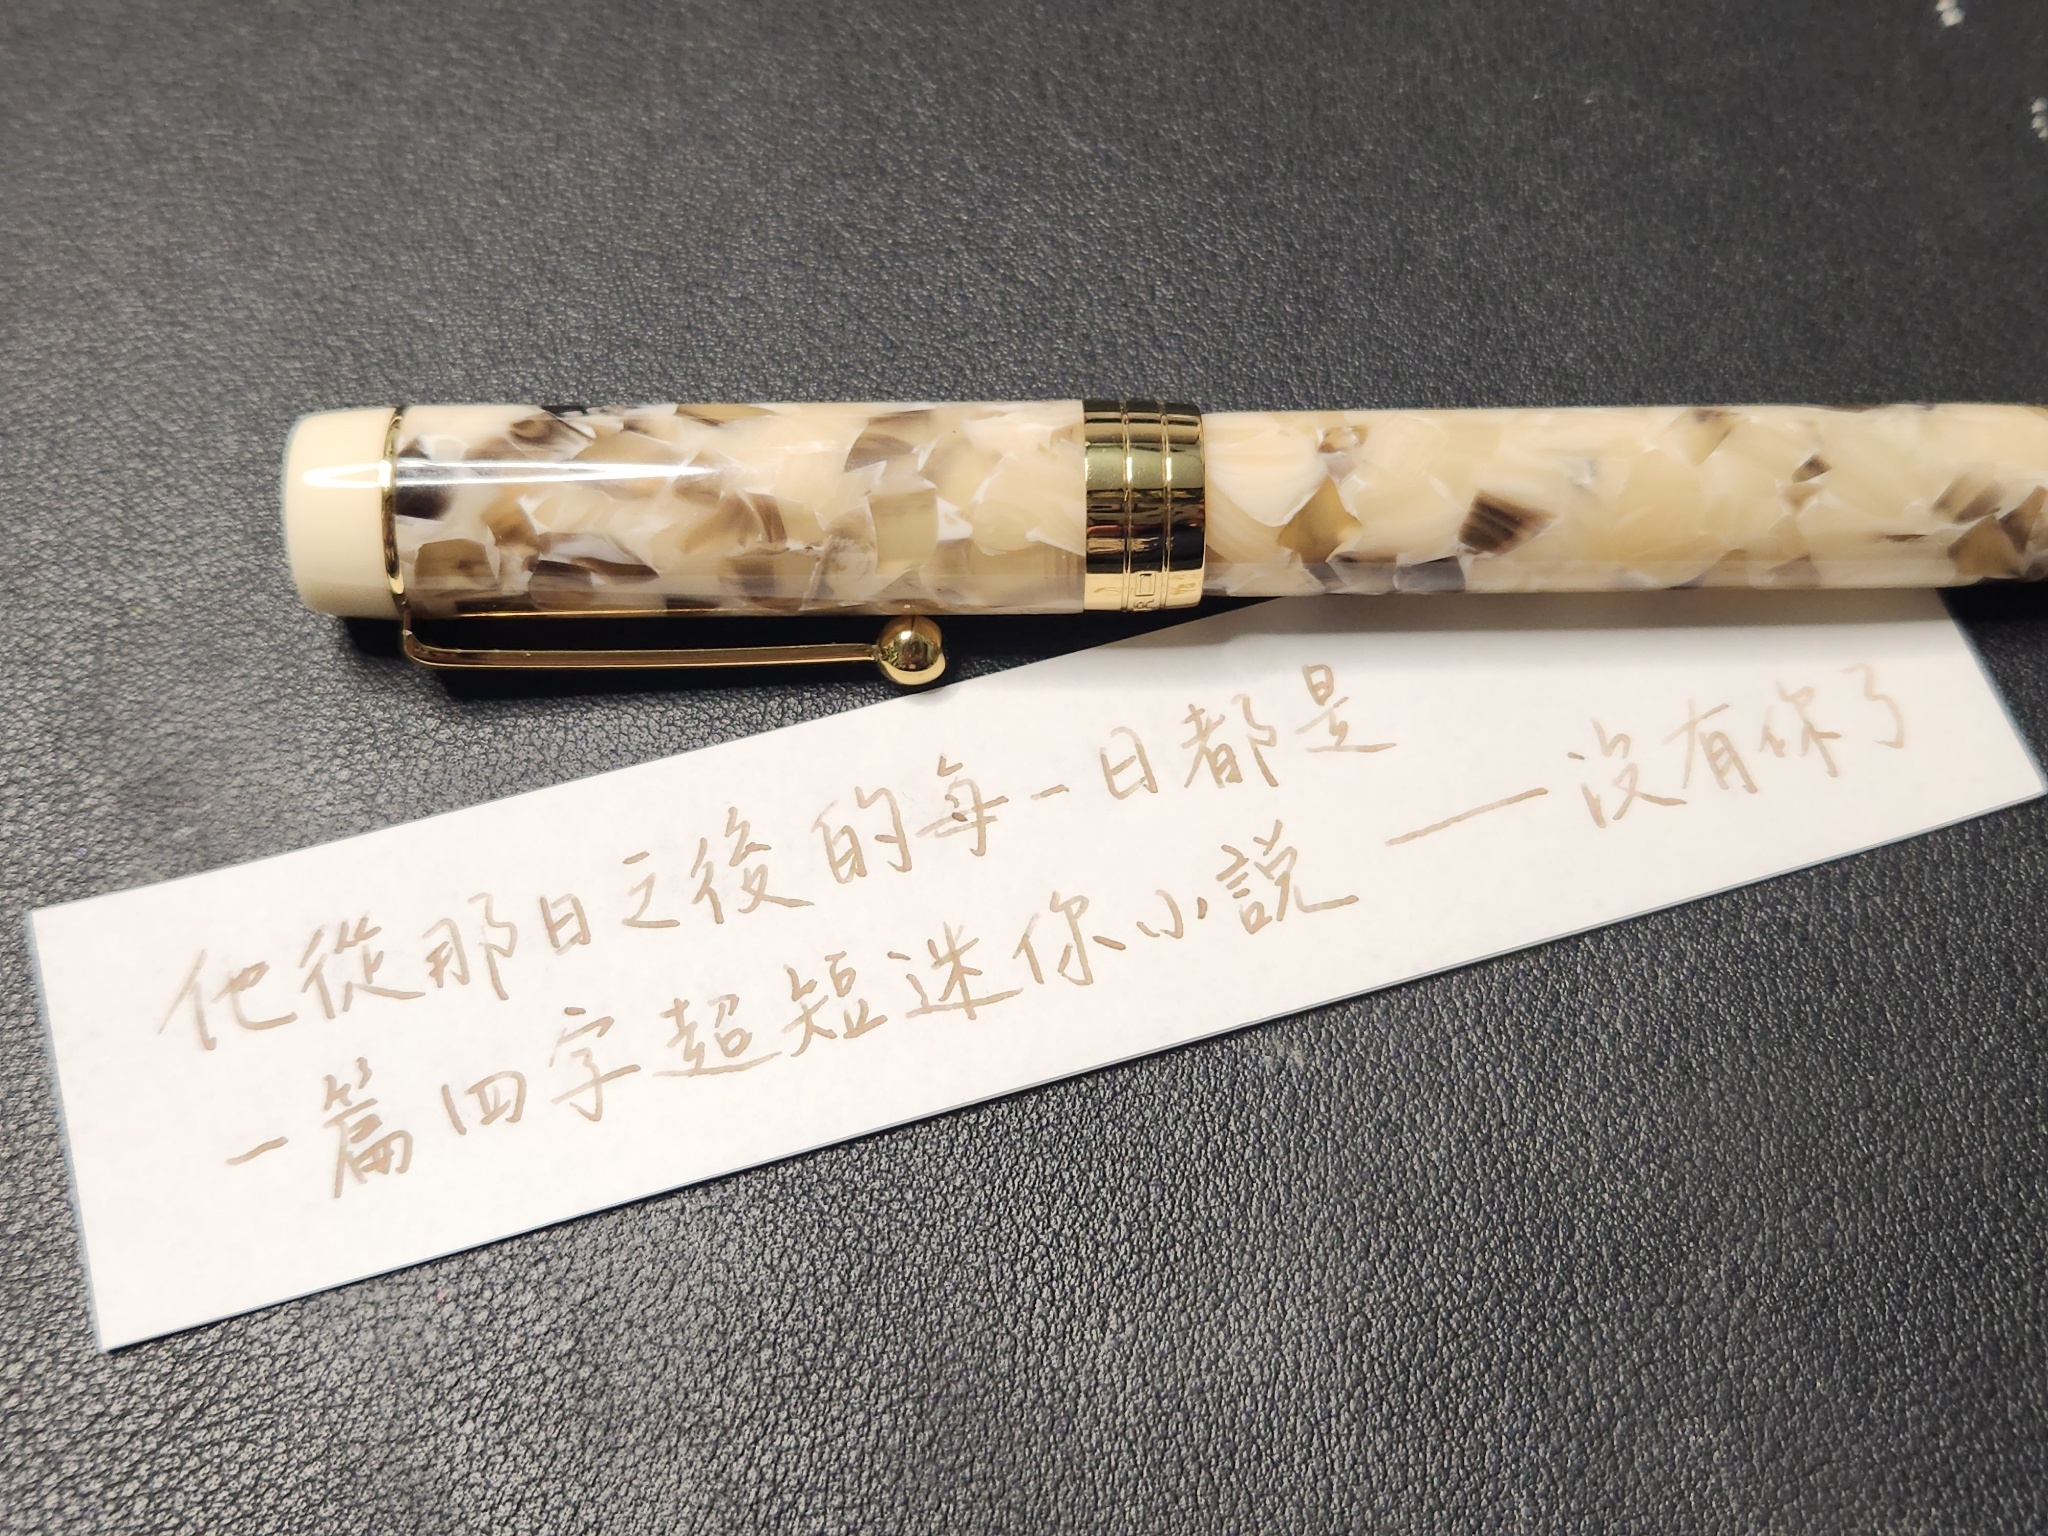 他從那日之後的每一日都是
一篇四字超短迷你小說——沒有你了